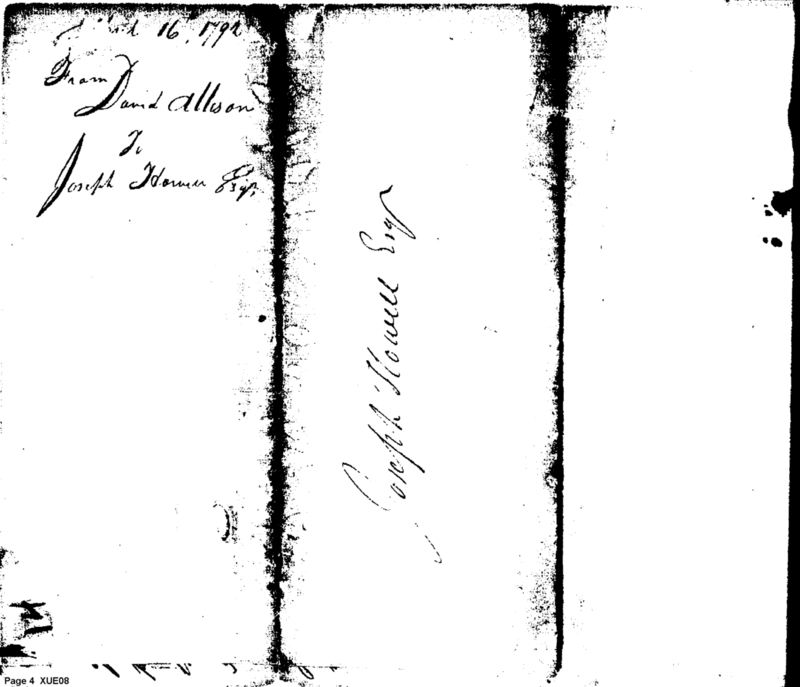 16, 1792
From
David Allison
To
Joseph Howell Esqr.
Joseph Howell Esqr
Page 4 XUE08